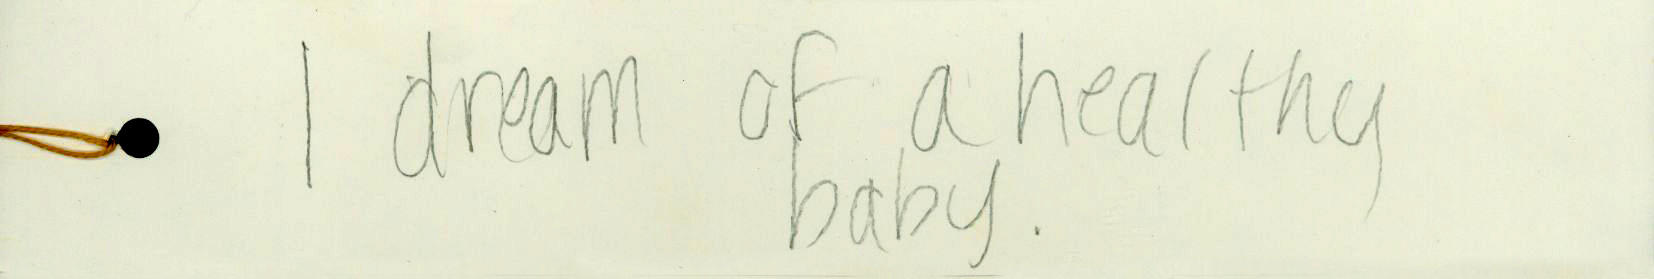 I dream of a healthy
baby.